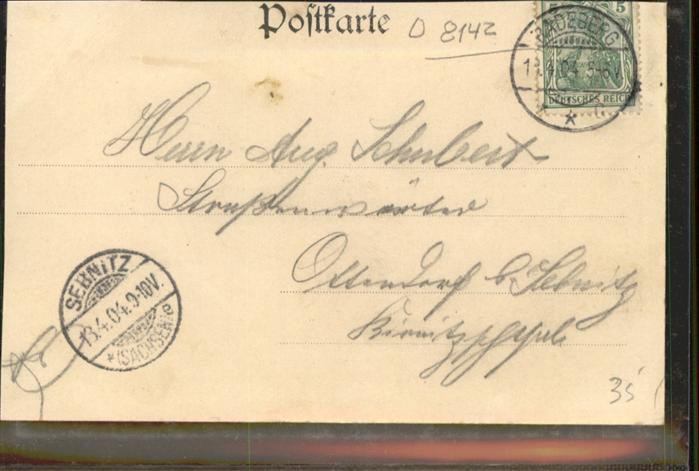 Postkarte
D 8142
5 5
RADEBERG
13.4.04. 5-6V
* c
DEUTSCHES REICH
Herrn Aug. Schubert
Straßenwärter
Ottendorf b. Sebnitz
SEBNITZ
13.4.04.9-10V.
*(SACHSEN)e
35